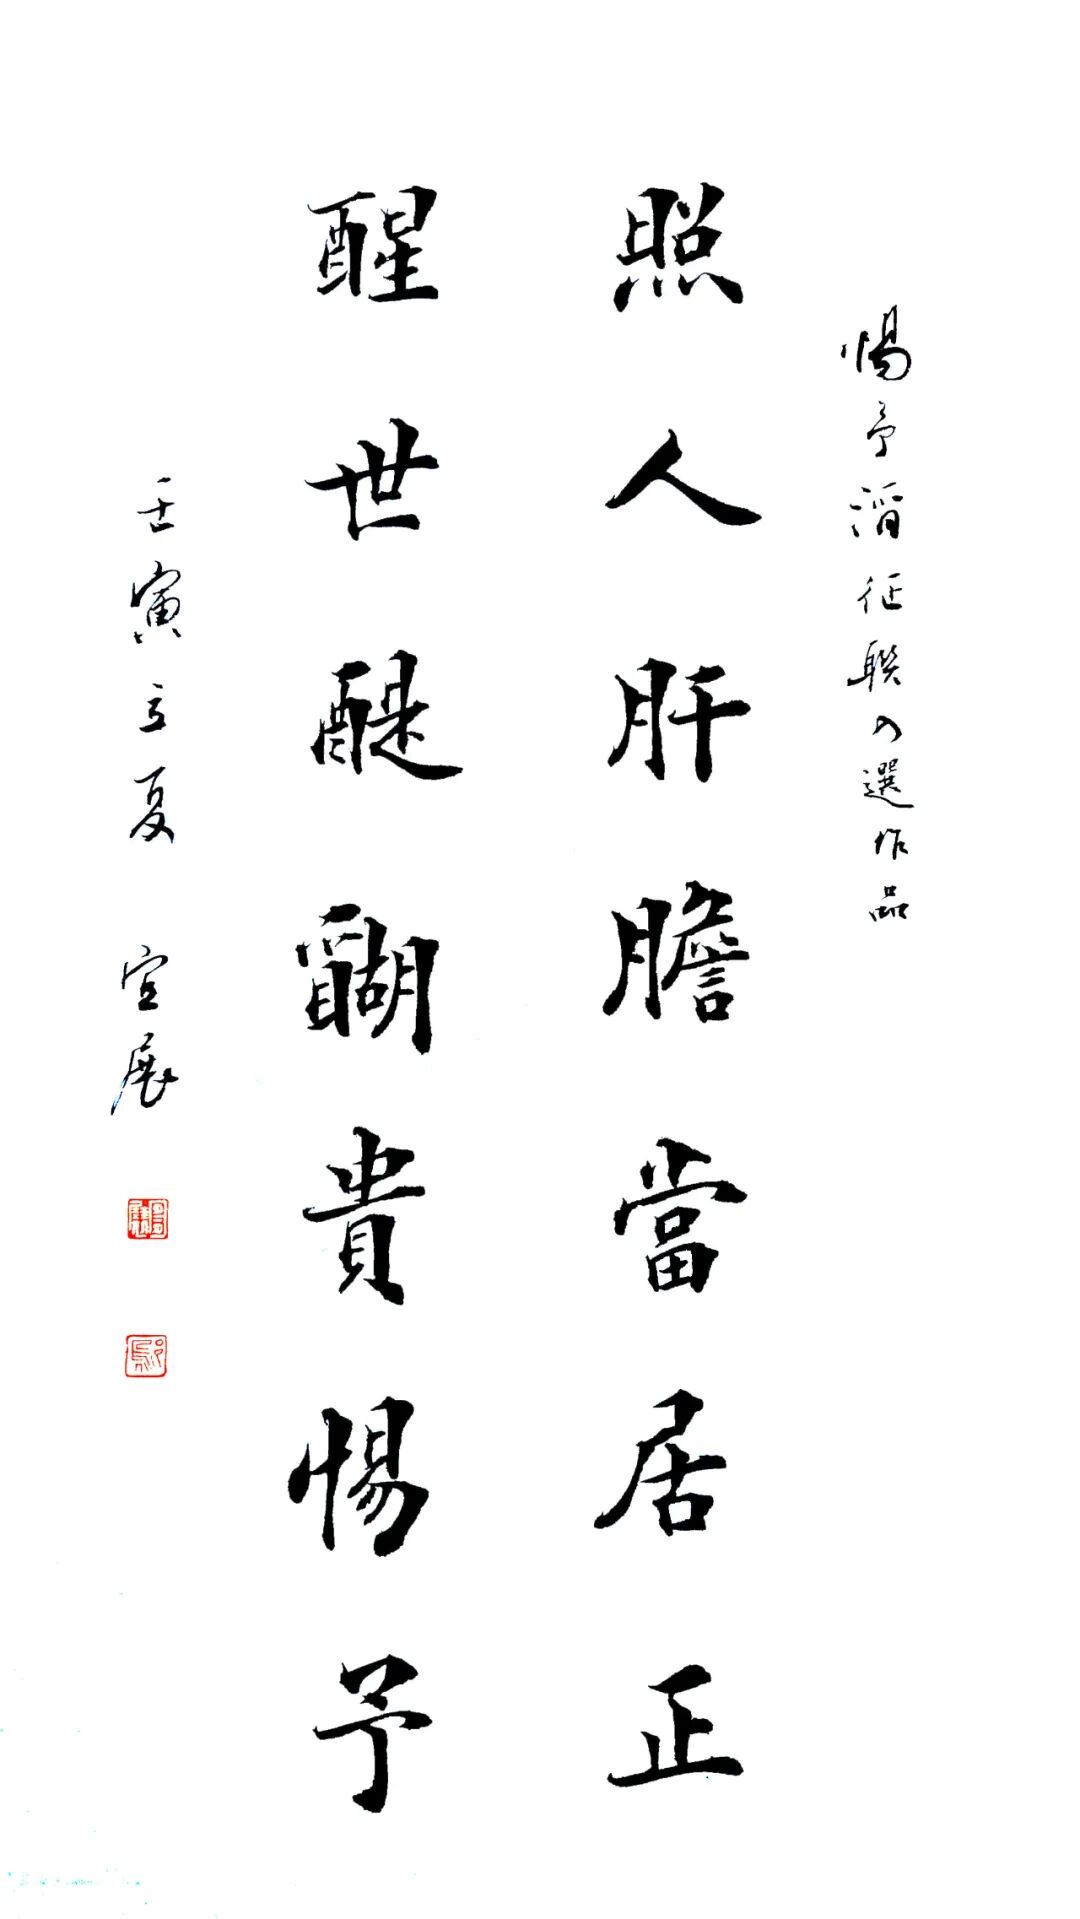 惕予酒征聯入選作品
照人肝膽當居正
醒世醍醐貴惕予
壬寅立夏 宣展